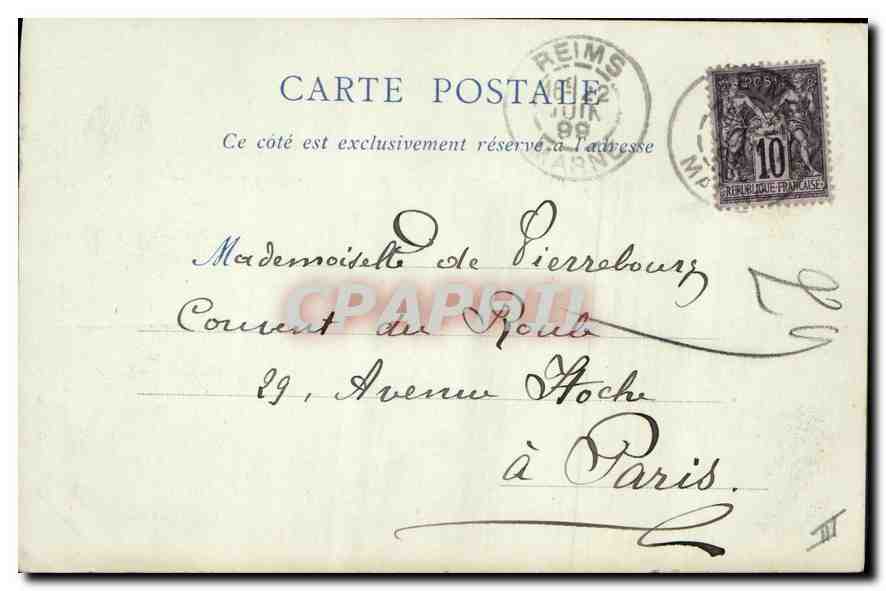 CARTE POSTALE
Ce côté est exclusivement réservé à l'adresse
REIMS
JUIN
99
MARNE
POSTE
10
REPUBLIQUE FRANÇAISE
MA
Mademoiselle de Pierrebourg
Couvent du Roule
29, Avenue Hoche
à Paris.
CPAPHIL
III